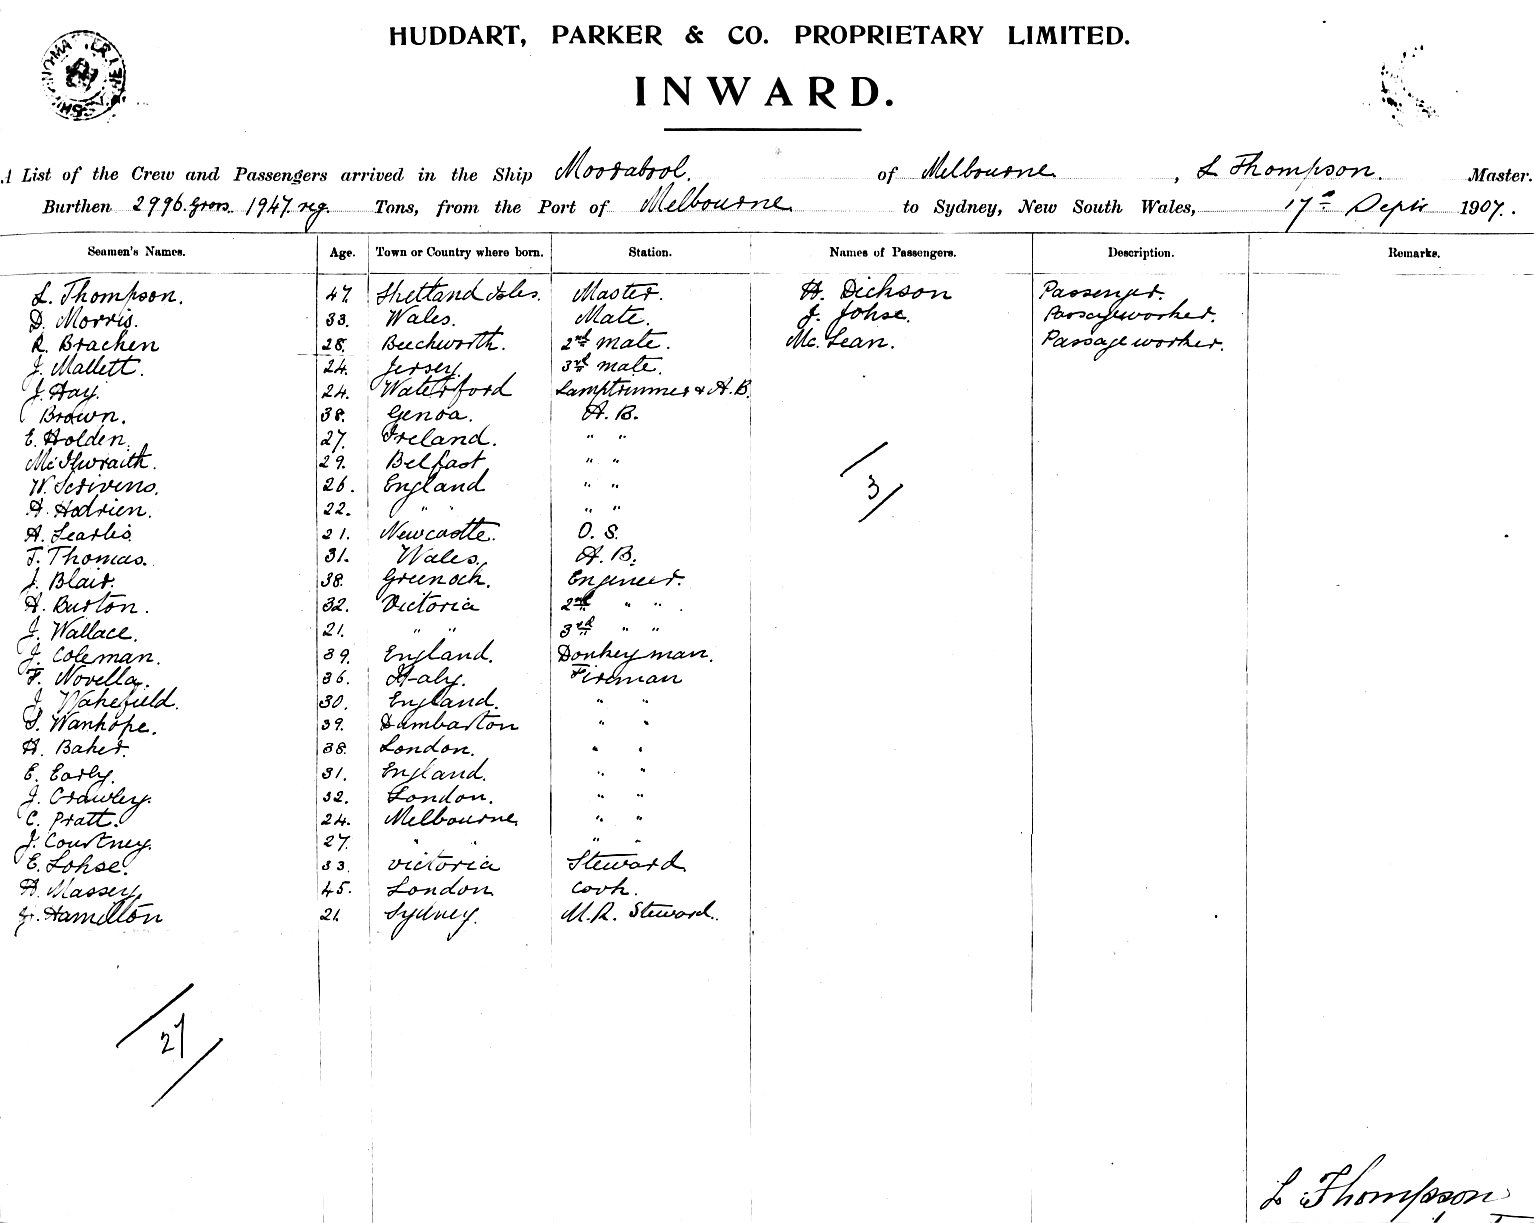 HUDDART, PARKER & CO. PROPRIETARY LIMITED.
INWARD.
A List of the Crew and Passengers arrived in the Ship Moorabool. of Melbourne, L Thompson. Master.
Burthen 2996 Gross. 1947 reg. Tons, from the Port of Melbourne to Sydney, New South Wales, 17th Septr 1907.
Seamen's Names. Age. Town or Country where born. Station. Names of Passengers. Description. Remarks.
L. Thompson. 47. Shetland Isles. Master. H. Dickson Passenger.
D. Morris. 33. Wales. Mate. J. Johse. Passageworker.
R. Bracken 28. Beechworth. 2nd mate. Mc. Lean. Passage worker.
J. Mallett. 24. Jersey. 3rd mate.
J. Hay. 24. Waterford Lamptrimmer & A.B.
Brown. 38. Genoa. A.B.
E. Holden. 27. Ireland. " "
McIlwraith. 29. Belfast " "
W. Scrivens. 26. England " "
A. Hodrien. 22. " " " "
A. 21. Newcastle. O.S.
T. Thomas. 31. Wales. A.B.
J. Blair. 38. Greenock. Engineer.
A. Burton. 32. Victoria 2nd " "
J. Wallace. 21. " " 3rd " "
J. Coleman. 39. England. Donkeyman.
F. Novella. 36. Italy. Fireman
J. Wakefield. 30. England. " "
S. Wanhope. 39. Dumbarton " "
H. Baker. 38. London. " "
E. Early. 31. England. " "
J. Crawley. 32. London. " "
C. Pratt. 24. Melbourne. " "
J. Courtney. 27. " " " "
E. Lohse. 33. Victoria Steward
H. Massey. 45. London Cook.
G. Hamilton 21. Sydney. M.R. Steward.
3
27
L Thompson